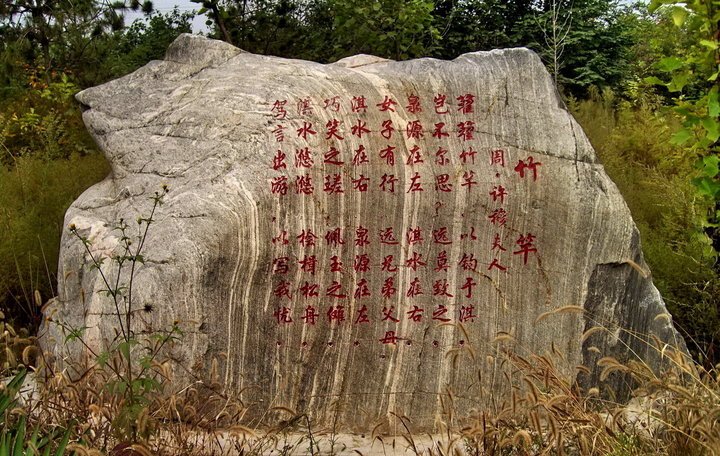 竹竿
周·许穆夫人
籊籊竹竿.以钓于淇.
岂不尔思?远莫致之.
泉源在左.淇水在右.
女子有行.远兄弟父母.
淇水在右.泉源在左.
巧笑之瑳.佩玉之傩.
淇水滺滺.桧楫松舟.
驾言出游.以写我忧.